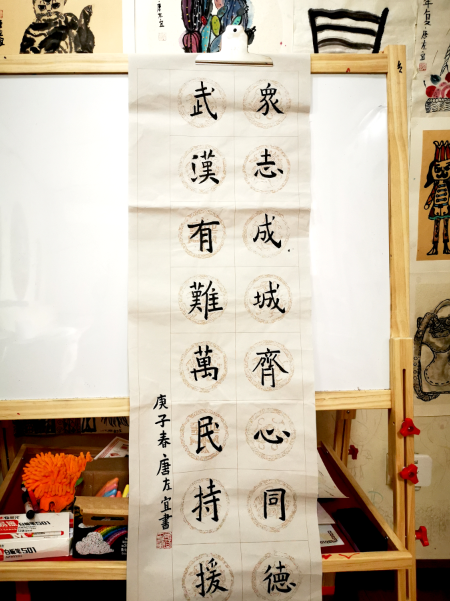 眾志成城齊心同德
武漢有難萬民持援
庚子春唐左宜書